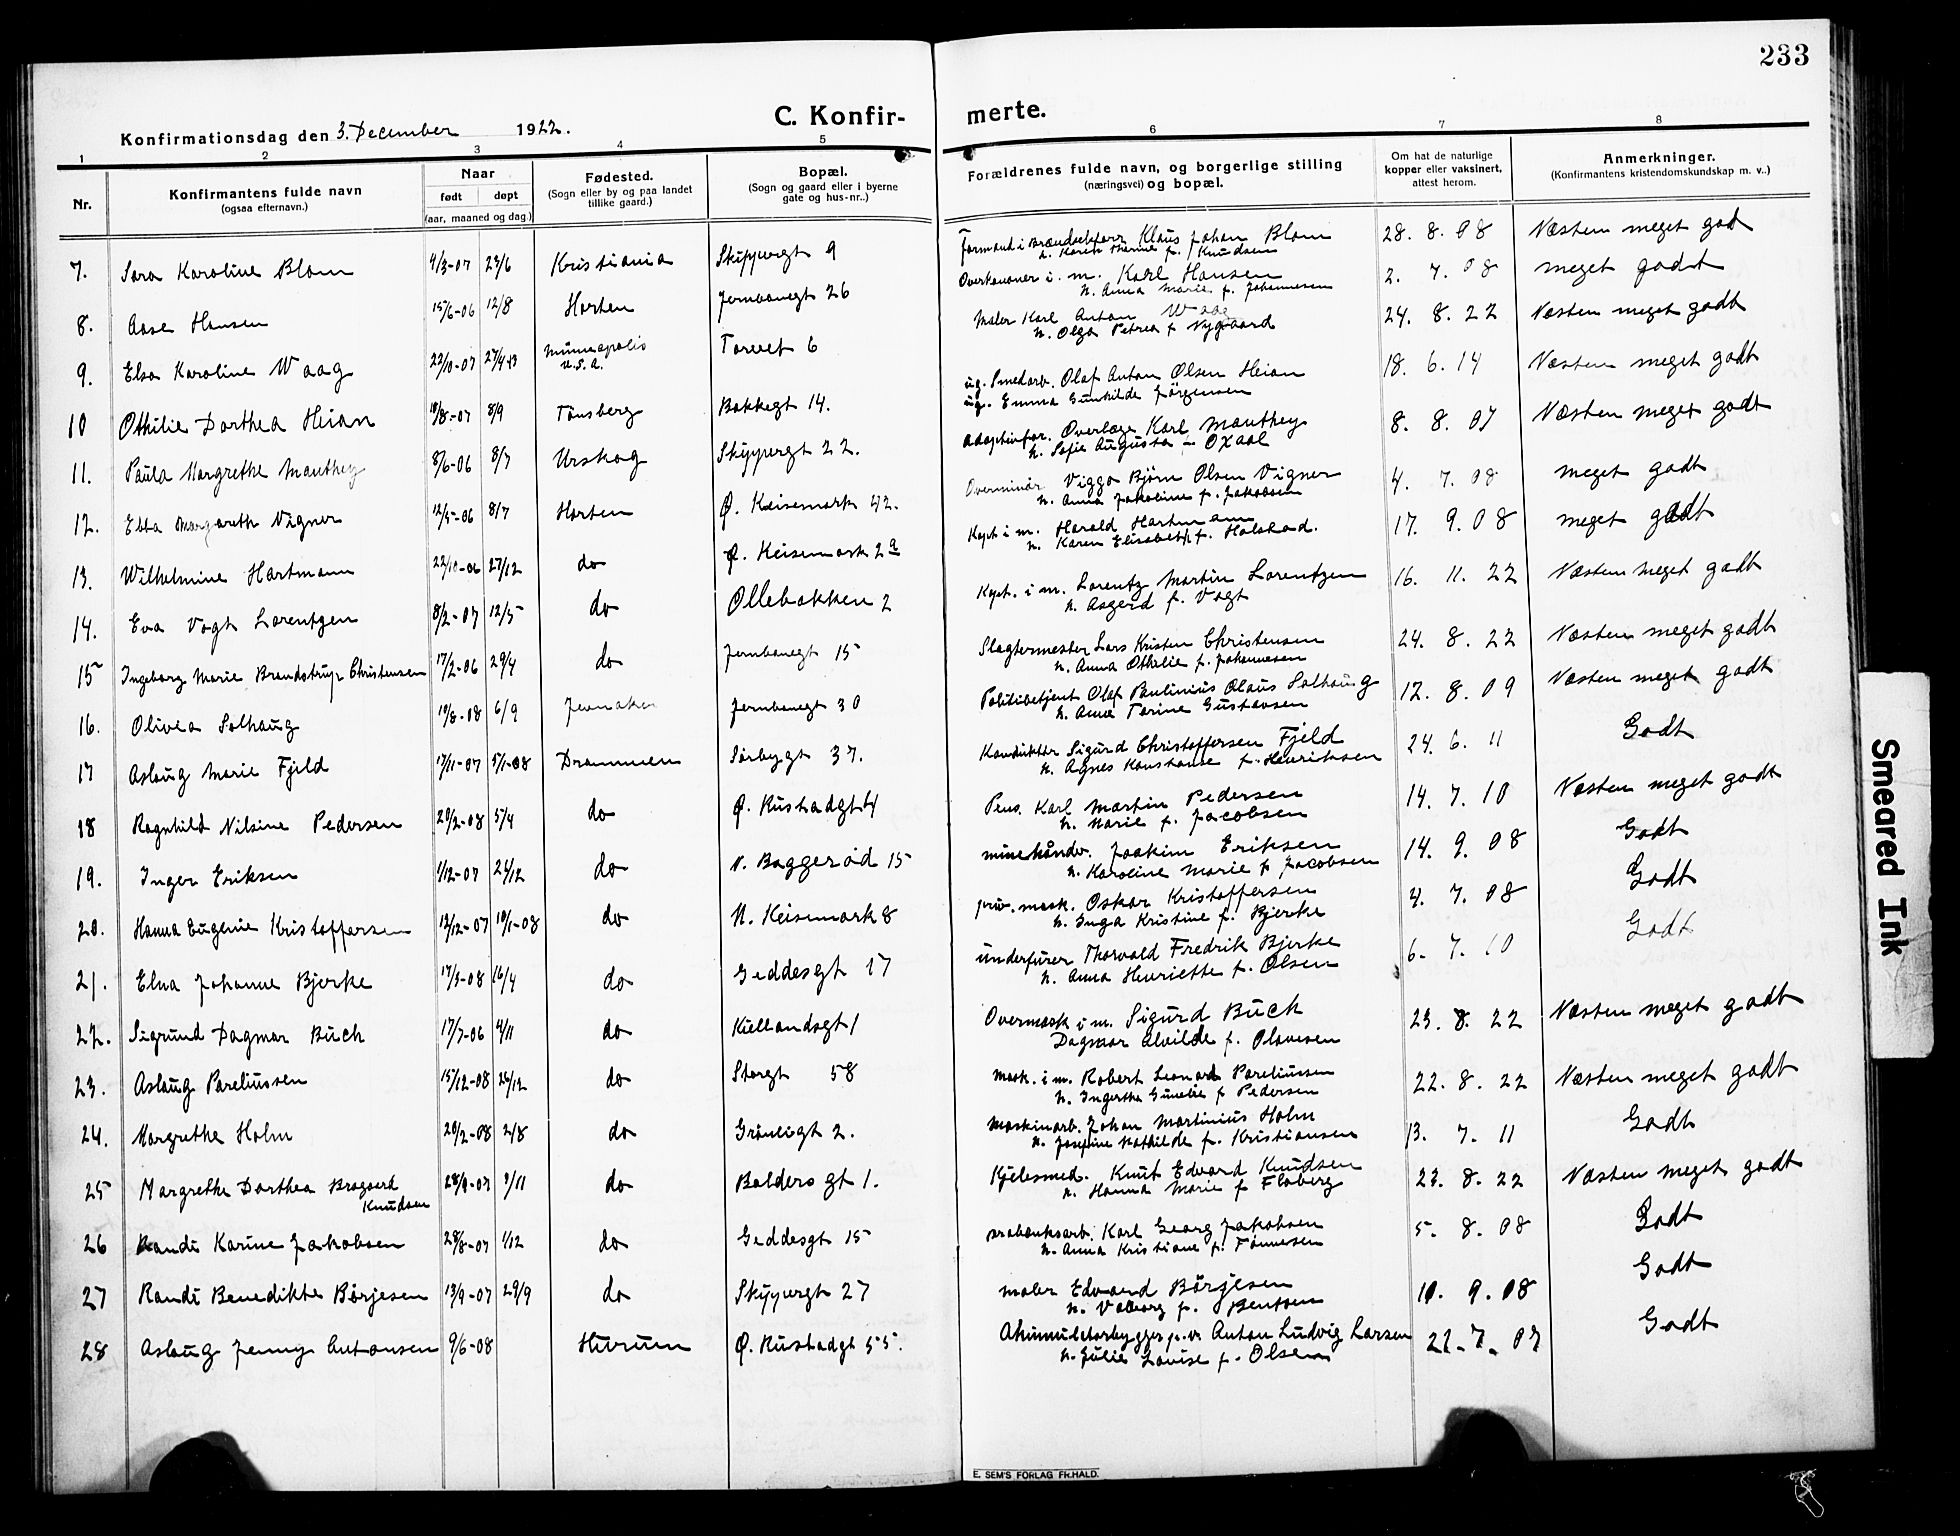 233
C. Konfirmerte.
Konfirmationsdag den 3. December 1922.
1 2 3 4 5 6 7 8
Nr.
Konfirmantens fulde navn
(ogsaa efternavn.)
Naar
født døpt
(aar, maaned og dag.)
Fødested.
(Sogn eller by og paa landet
tillike gaard.)
Bopæl.
(Sogn og gaard eller i byerne
gate og hus-nr..)
Forældrenes fulde navn, og borgerlige stilling
(næringsvei) og bopæl.
Om hat de naturlige
kopper eller vaksinert,
attest herom.
Anmerkninger.
(Konfirmantens kristendomskundskap m. v..)
7. Sara Karoline Blom 4/3-07 29/6 Kristiania Skippergt 9 Formand i Klaus Johan Blom 28. 8. 08 Næsten meget god
h. Karen f. Knudsen
8. Aase Hansen 15/6-06 12/8 Horten Jernbanegt 26 Overkanoner i. m. Karl Hansen 2. 7. 08 meget godt
h. Anna Marie f. Johannesen
9. Elsa Karoline Waag 22/10-07 27/4-13 Minneapolis Torvet 6 Maler Karl Anton Waag 24. 8. 22 Næsten meget godt
U.S.A. h. Olga Petrea f. Nygaard
10 Othilie Dorthea Heian 10/8-07 8/9 Tønsberg Bakkegt 14. ug. Smedarb. Olaf Anton Olsen Heian 18. 6. 14 Næsten meget godt
ug. Emma Gunhilde Jørgensen
11. Paula Margrethe Manthey 8/6-06 8/7 Urskog Skippergt 22. adoptivfor. Overlæge Karl Manthey 8. 8. 07 Næsten meget godt
h. Sofie Augusta Oxaal
12. Ebba Margareth Vigner 12/5-06 8/7 Horten Ø. Keisemark 42. Overminør Viggo Bjørn Olsen Vigner 4. 7. 08 meget godt
h. Anna Jakobine f. Jakobsen
13. Wilhelmine Hartmann 22/10-06 27/12 do Ø. Keisemark 2a Kapt i m. Harald Hartmann 17. 9. 08 meget godt
h. Karen Elisabeth f. Holstad.
14. Eva Vogt Lorentzen 8/2-07 12/5 do Ollebakken 2 Kapt. i m. Lorentz Martin Lorentzen 16. 11. 22 Næsten meget godt
h. Asgerd f. Vogt
15 Ingeborg Marie Brandstrup Christensen 17/2-06 29/4 do Jernbanegt 15 Slagtermester Lars Kristen Christensen 24. 8. 22 Næsten meget godt
h. Anna Othilie f. Johannesen
16. Olivea Solhaug 10/8-08 6/9 Jevnaker Jernbanegt 30 Politibetjent Olaf Paulinius Olaus Solhaug 12. 8. 09 Næsten meget godt
h. Anne Torine Gustavsen
17 Aslaug Marie Fjeld 17/11-07 5/1-08 Drammen Sørbygt 37. Konduktør Sigurd Christoffersen Fjeld 24. 6. 11 Godt
h. Agnes Konstanse f. Henriksen
18 Ragnhild Nilsine Pedersen 20/2-08 5/4 do Ø. Rustadgt 4 Pens. Karl Martin Pedersen 14. 7. 10 Næsten meget godt
h. Marie f. Jacobsen
19. Inger Eriksen 1/12-07 24/12 do N. Baggerød 15 minehåndv. Joakim Eriksen 14. 9. 08 Godt
h. Karoline Marie f. Jacobsen
20. Hanna Eugenie Kristoffersen 12/12-07 10/1-08 do N. Keisemark 8 priv. mask. Oskar Kristoffersen 4. 7. 08 Godt
h. Inga Kristine f. Bjerke
21. Elna Johanne Bjerke 17/3-08 16/4 do Geddesgt 17 underfurer Thorvald Fredrik Bjerke 6. 7. 10 Godt
h. Anna Henriette f. Olsen
22. Sigrund Dagmar Buch 17/7-06 4/11 do Kiellandsgt 1 Overmask i m. Sigurd Buch 23. 8. 22 Næsten meget godt
Dagmar Alvilde f. Olavesen
23. Aslaug Pareliussen 15/12-08 26/12 do Storgt 58 Mask. i m. Robert Leonard Pareliussen 22. 8. 22 Næsten meget godt
h. f. Pedersen
24. Margrethe Holm 20/2-08 2/8 do Grønligt 2. Maskinarb. Johan Martinius Holm 13. 7. 11 Godt
h. Josefine Mathilde f. Kristiansen
25 Margrethe Dorthea Bragaard Knudsen 28/9-07 3/11 do Balders gt 1. Kjelesmed. Knut Edvard Knudsen 23. 8. 22 Næsten meget godt
h. Hanna Marie f. Floberg
26 Randi Karine Jakobsen 28/8-07 1/12 do Geddesgt 15 Karl Georg Jakobsen 5. 8. 08 Godt
h. Anna Kristiane f. Tønnesen
27 Randi Benedikte Børjesen 13/9-07 29/9 do Skippergt 27 maler Edvard Børjesen 10. 9. 08 Godt
h. Valborg f. Bentsen
28 Aslaug Jenny Antonsen 9/6-08 Hurum Ø. Rustadgt 55. Akumulatorbygger p. v. Anton Ludvig Larsen 22. 7. 07 Godt
h. Julie Lovise f. Olsen
E. SEM'S FORLAG FR.HALD.
Smeared Ink